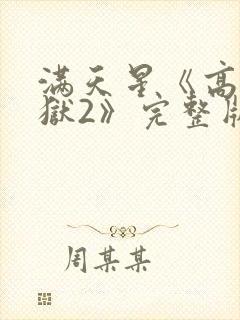 满天星《高
獄2》完整版
周某某